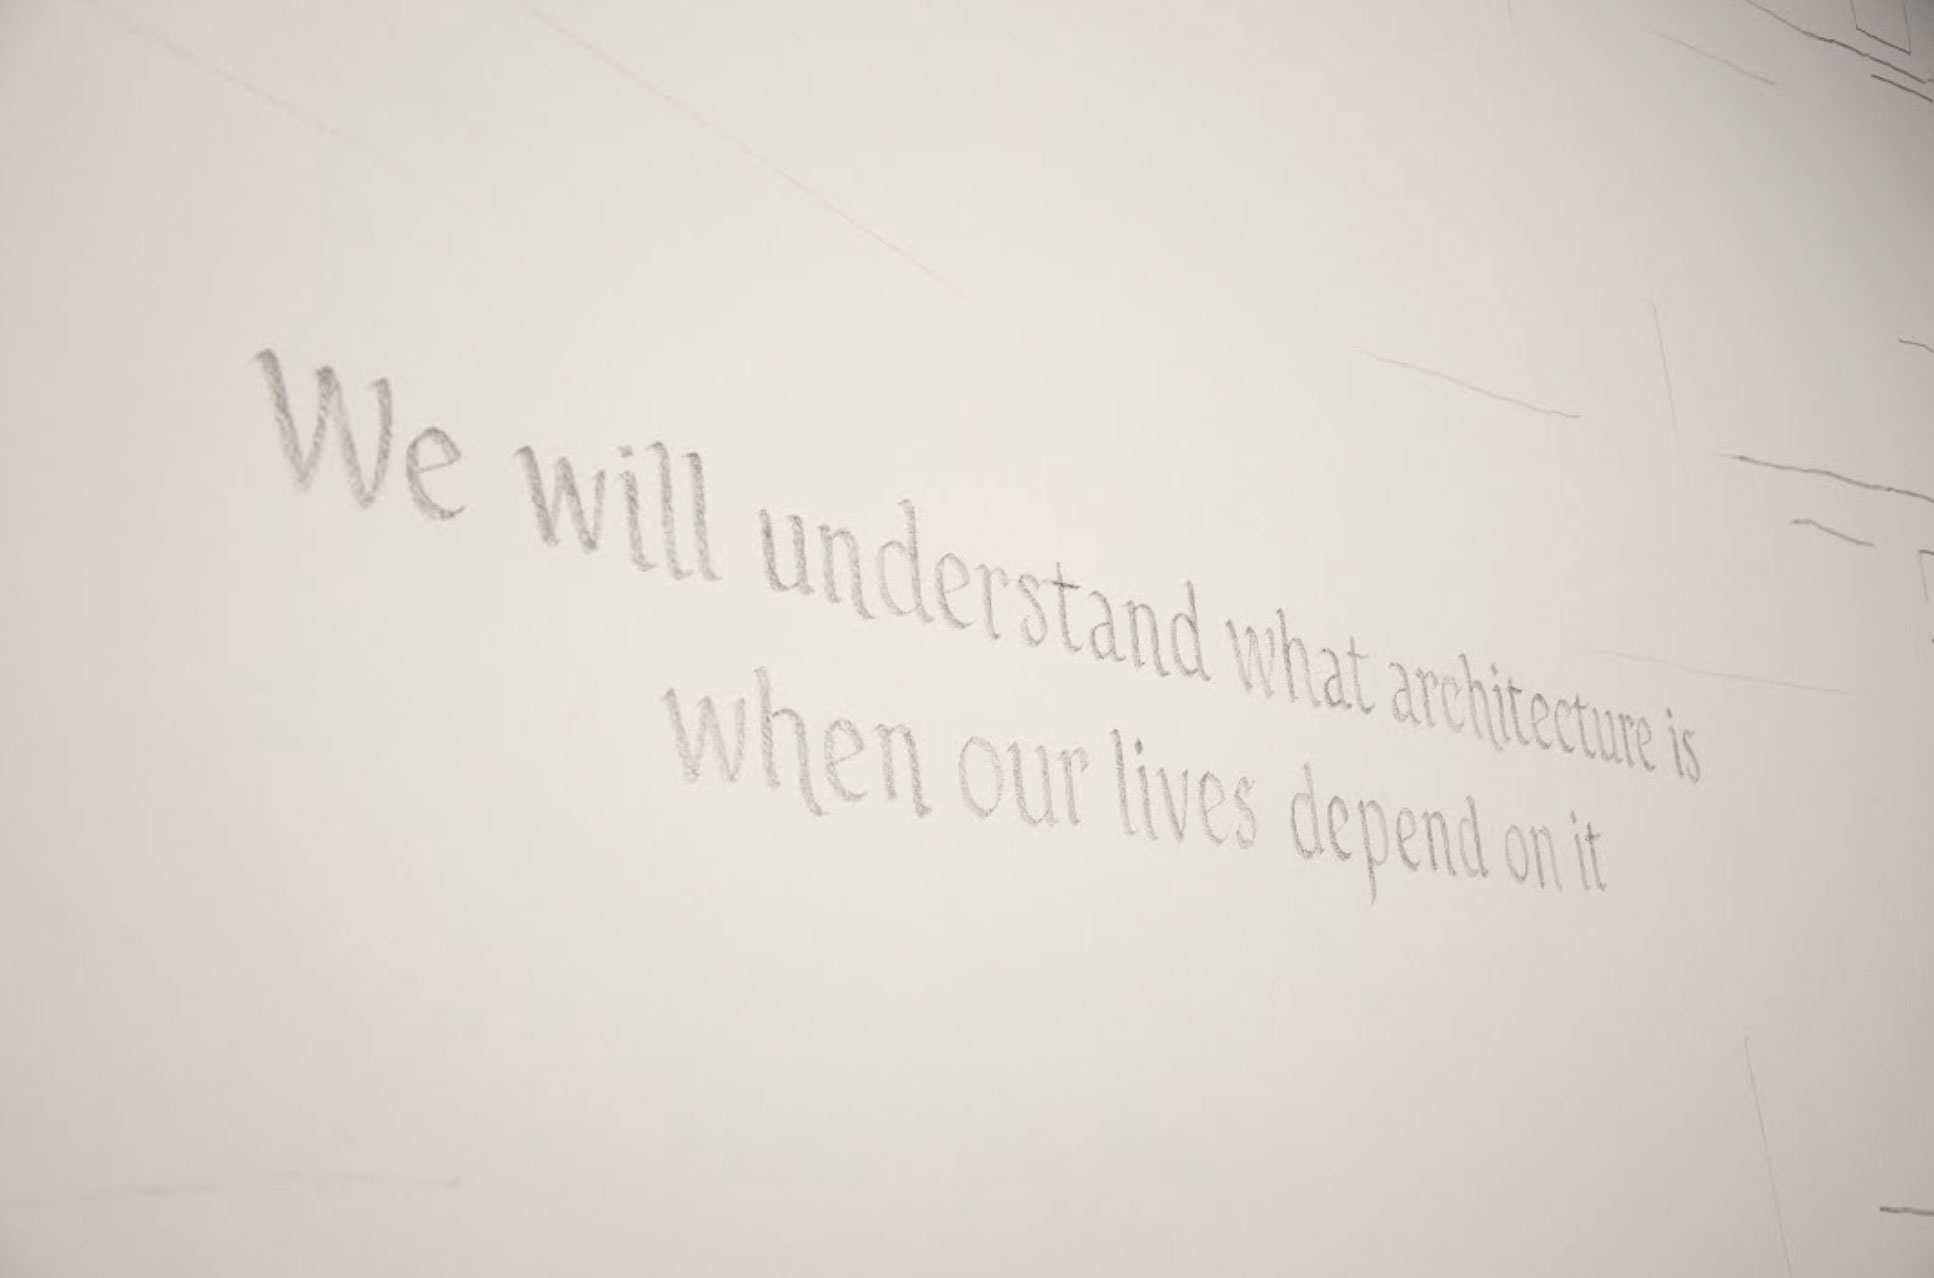 We will understand what architecture is
when our lives depend on it